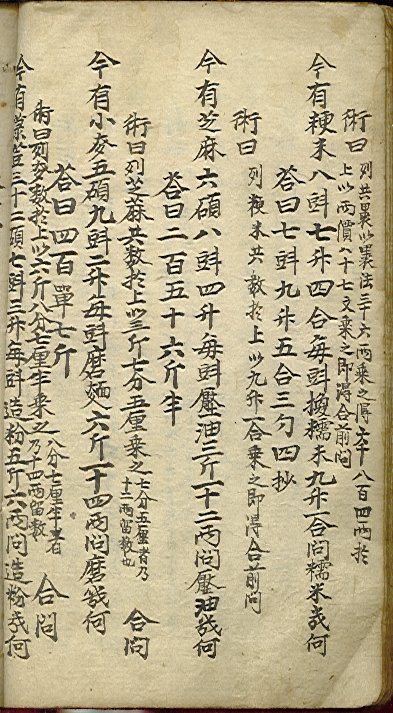 術曰 列共以法三十六兩乘之得六千八百四兩於
上以兩價八十七文乘之即得合前問
今有粳米八㪷七升四合每㪷換糯米九升一合問糯米幾何
答曰七㪷九升五合三勺四抄
術曰 列粳米共數於上以九升一合乘之即得合前問
今有芝麻六碩八㪷四升每㪷壓油三斤一十二兩問壓油幾何
答曰二百五十六斤半
術曰列芝麻共數於上以三斤七分五厘乘之
七分五厘者乃
十二兩留數也
合問
今有小麥五碩九㪷二升每㪷磨麵六斤一十四兩問磨幾何
答曰四百單七斤
術曰列麥數於上以六斤八分七厘半乘之
八分七厘半者
乃十四兩留數
合問
今有菉荳三十二碩七㪷三升每㪷造粉五斤六兩問造粉幾何